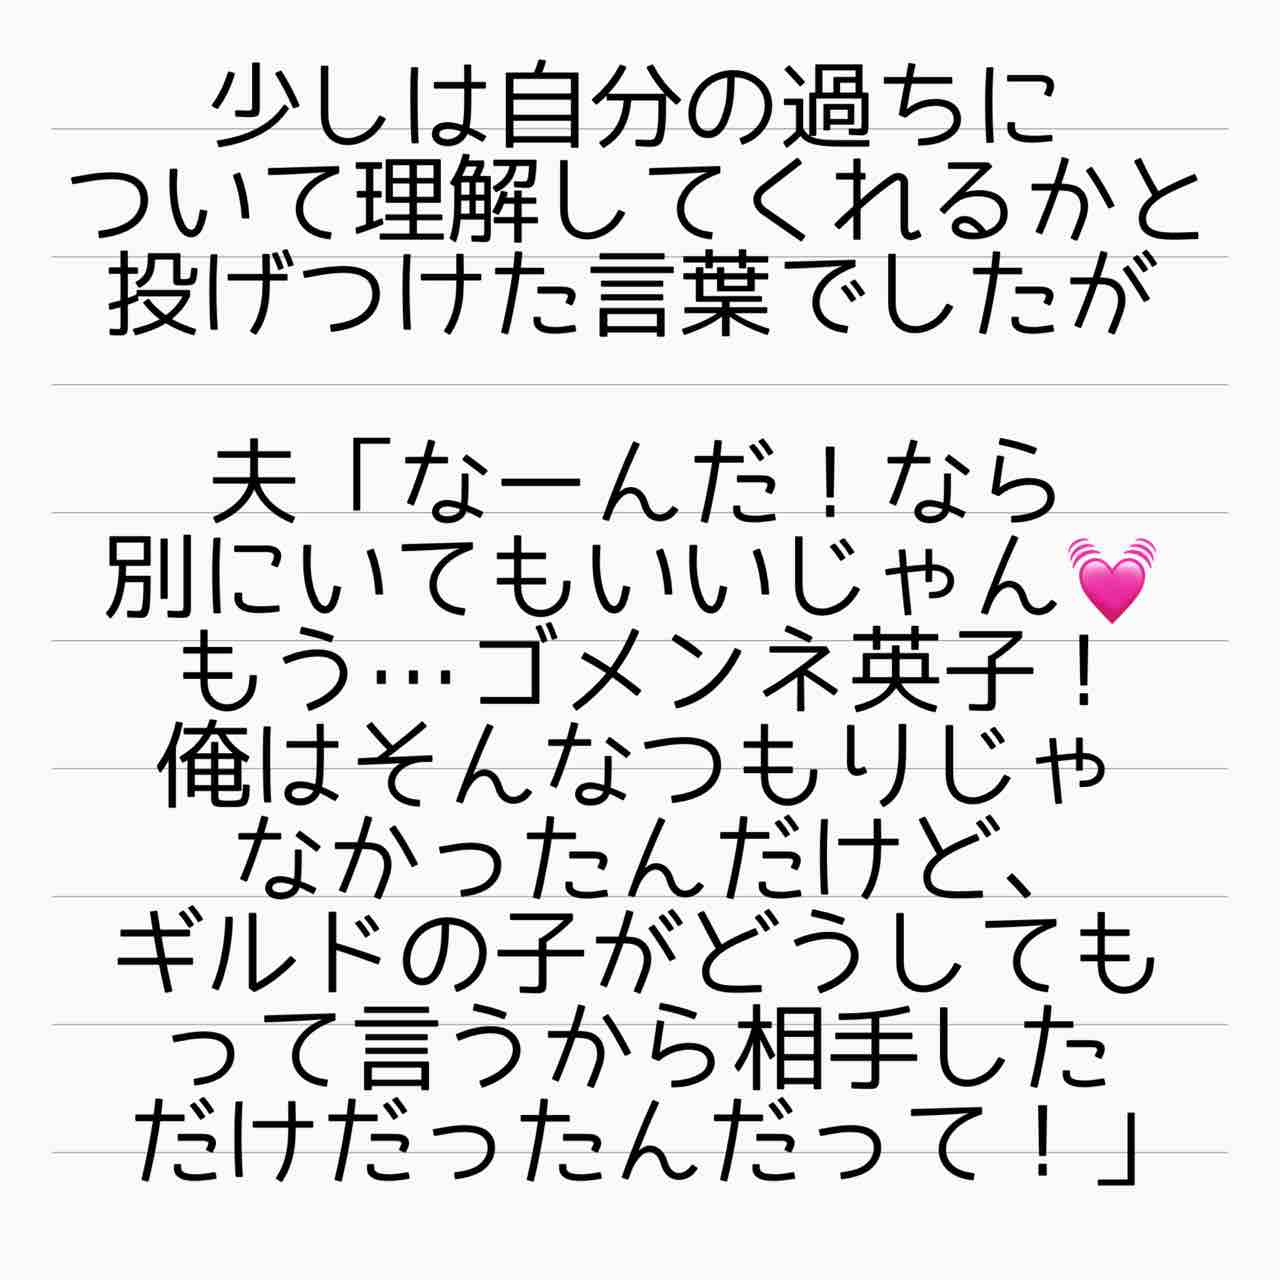 少しは自分の過ちに
ついて理解してくれるかと
投げつけた言葉でしたが
夫「なーんだ！なら
別にいてもいいじゃん💓
もう…ゴメンネ英子！
俺はそんなつもりじゃ
なかったんだけど、
ギルドの子がどうしても
って言うから相手した
だけだったんだって！」